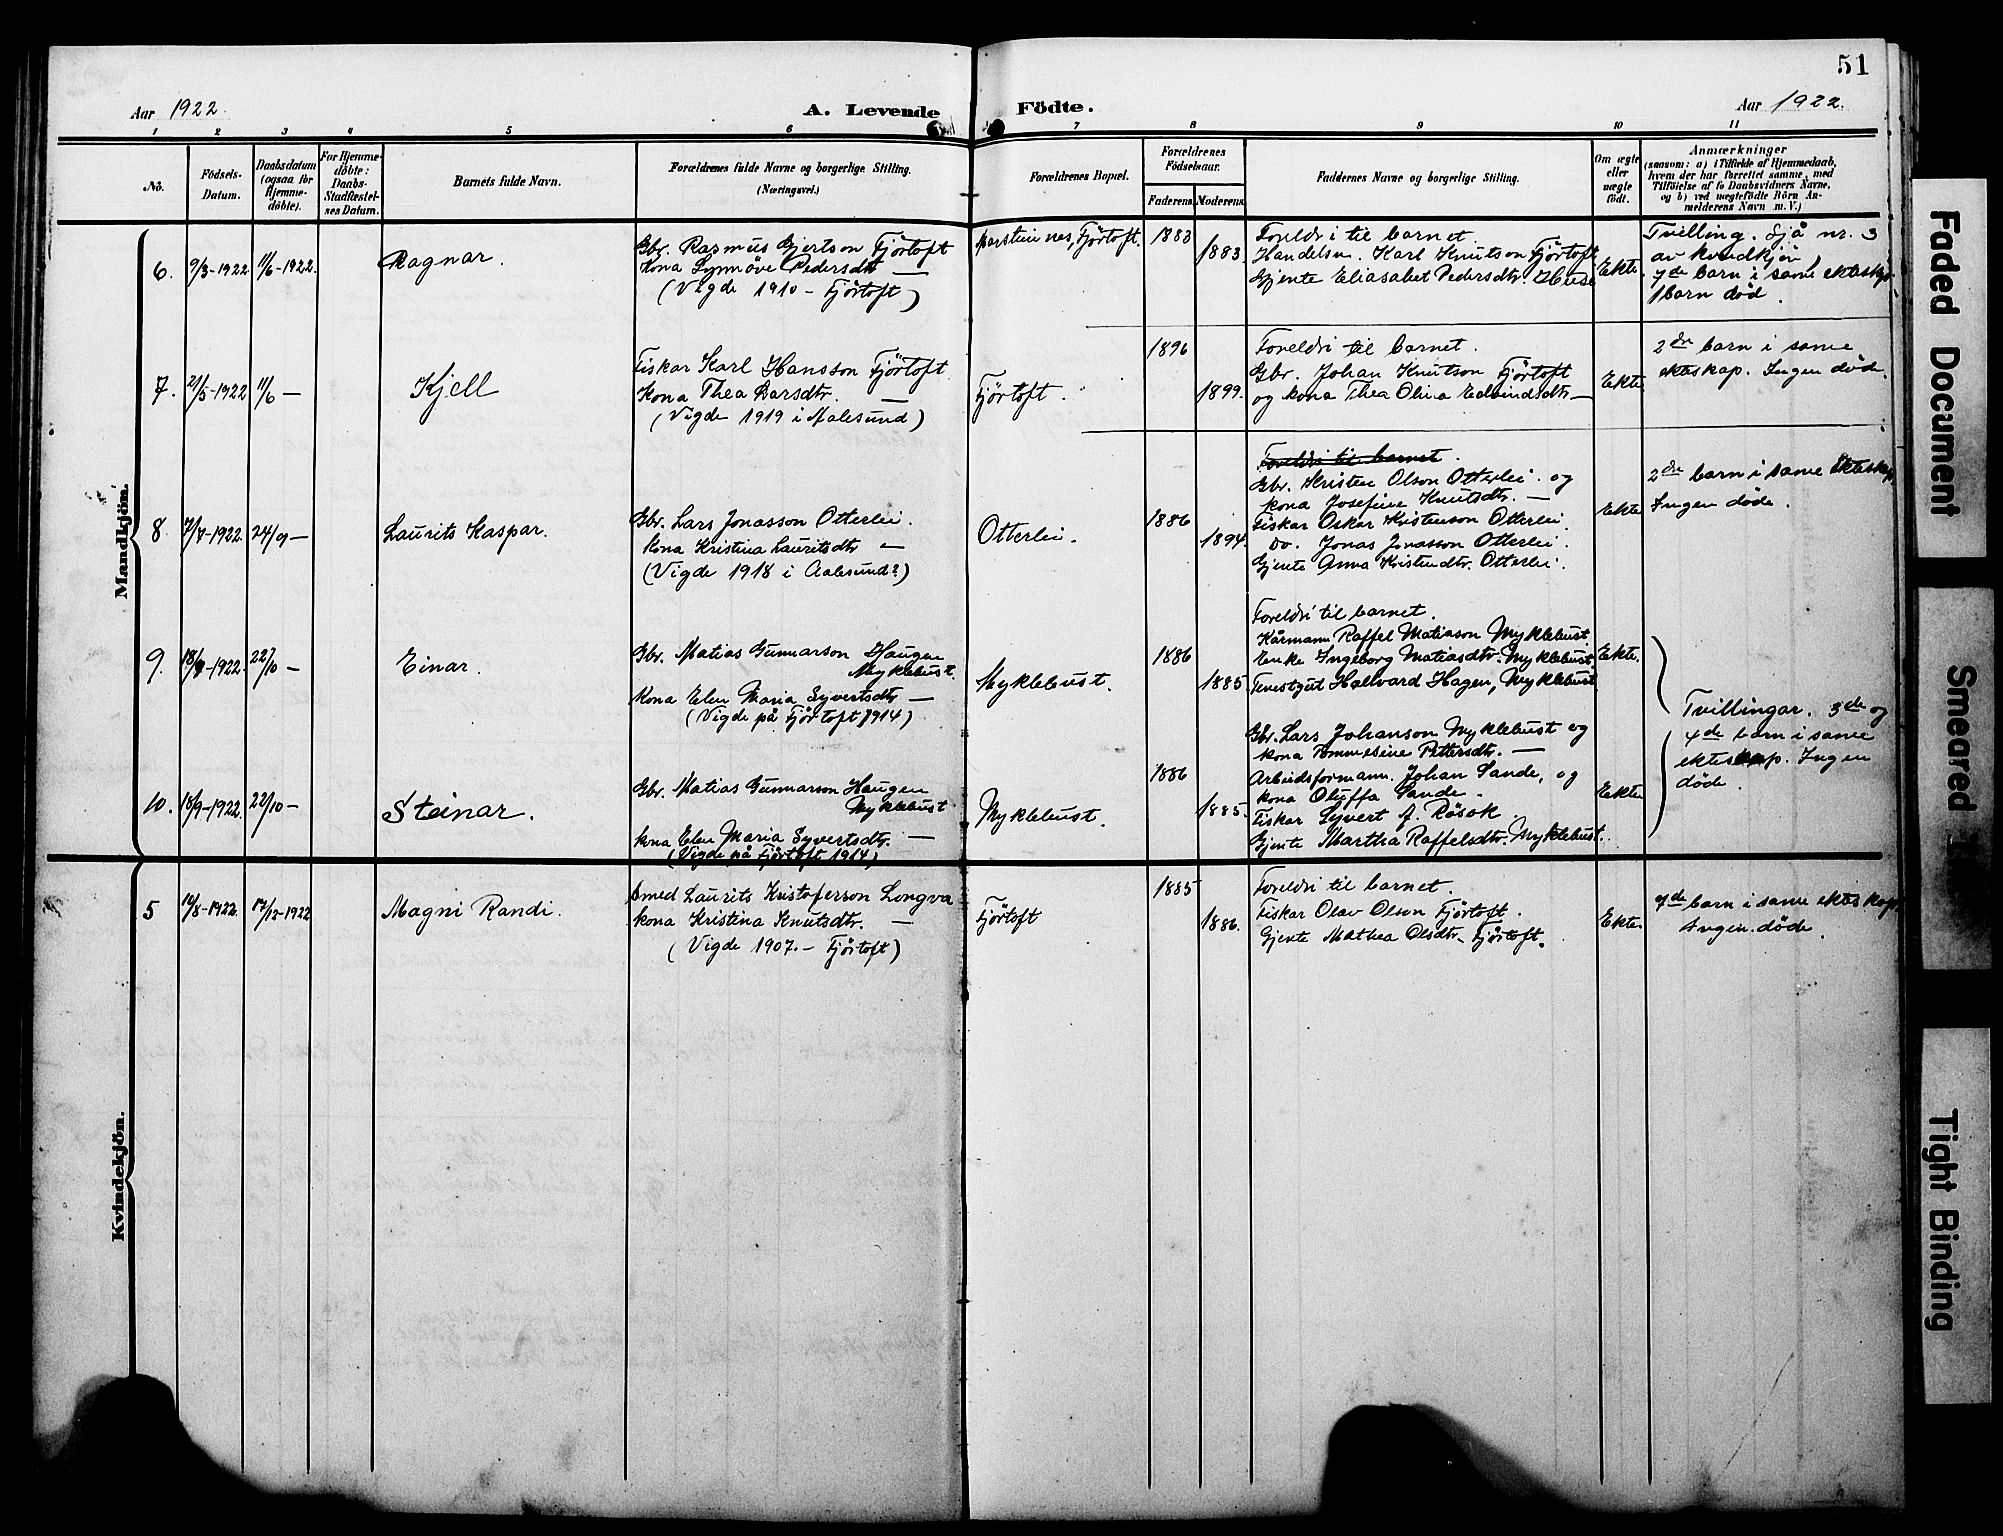 51
Aar 1922.
A. Levende
Födte.
Aar 1922.
1 2 3 4 5 6 7 8 9 10 11
No.
Födsels-
Datum.
Daabsdatum
(ogsaa for
Hjemme-
döbte).
For Hjemme-
döbte:
Daabs-
Stadfæstel-
ses Datum.
Barnets fulde Navn.
Forældrenes fulde Navne og borgerlige Stilling.
(Næringsvei.)
Forældrenes Bopæl.
Forældrenes
Födselsaar.
Faderens.
Moderens.
Faddernes Navne og borgerlige Stilling.
Om ægte
eller
uægte
födt.
Anmærkninger
(saasom: a) i Tilfælde af Hjemmedaab,
hvem der har forrettet samme, med
Tilföielse af to Daabsvidners Navne,
og b) ved uægtefödte Börn An-
melderens Navn m. V.)
Mandkjön.
6. 9/3-1922 11/6-1922.
Ragnar.
Gbr. Rasmus Gjertson Fjörtoft
kona Synnöve Pedersdtr —
(Vigde 1910 - Fjörtoft)
Fjörtoft.
1883
1883
Foreldri til barnet.
Handelsm. Karl Knutson Fjörtoft
Gjente Eliasabet Pedersdtr. Huse
Ekte
Tvilling. Sjå nr. 3
av kvendkjön,
7de barn i same ekteskap.
1 barn död.
7. 21/5-1922 11/6 —
Kjell
Fiskar Karl Hansson Fjörtoft
Kona Thea Larsdtr. —
(Vigde 1919 i Aalesund)
Fjörtoft.
1896
1899.
Foreldri til barnet.
Gbr. Johan Knutson Fjörtoft
og kona Thea Olina Edvindsdtr —
Ekte
2dre barn i same
ekteskap. Ingen döde.
8 7/7-1922. 24/9 —
Laurits Kaspar.
Gbr. Lars Jonasson Otterlei.
kona Kristina Lauritsdtr —
(Vigde 1918 i Aalesund?)
Otterlei.
1886
1894.
Foreldri til barnet.
Gbr. Kristen Olson Otterlei. og
kona Josefine Knutsdtr. —
Fiskar Oskar Kristenson Otterlei.
Do. Jonas Jonasson Otterlei.
Gjente Anna Kristendtr. Otterlei.
Ekte
2dre barn i same ekteskap.
Ingen döde.
9. 18/9-1922. 22/10 —
Einar.
Gbr. Matias Gunnarson Haugen
Myklebust.
Kona Elen Maria Syvertsdtr —
(Vigde på Fjörtoft 1914)
Myklebust.
1886
1885
Foreldri til barnet.
Kårmann Raffel Matiason Myklebust
Enke Ingeborg Matiasdtr. Myklebust.
Tenestgut Hallvard Hagen, Myklebust
Ekte.
Tvillingar. 3de og
4de barn i same
ekteskap. Ingen
döde.
10. 18/9-1922. 22/10 —
Steinar.
Gbr. Matias Gunnarson Haugen
Myklebust
kona Elen Maria Syvertsdtr. —
(Vigde på Fjörtoft 1914)
Myklebust.
1886
1885.
Gbr. Lars Johanson Myklebust og
kona Tommesine Pettersdtr. —
Arbeidsformann. Johan Sande, og
kona Oluffa Sande.
Fiskar Syvert J. Rösok
Gjente Martha Raffelsdtr. Myklebust.
Ekte
Kvindekjön.
5 14/8-1922. 17/12-1922
Magni Randi.
Smed Laurits Kristoferson Longva
kona Kristina Knutsdtr. —
(Vigde 1907. - Fjörtoft)
Fjörtoft
1885
1886.
Foreldri til barnet.
Fiskar Olav Olson Fjörtoft.
Gjente Mathea Olsdtr. Fjörtoft.
Ekte
7de barn i same ekteskap,
Ingen döde.
Faded Document
Smeared
Tight Binding